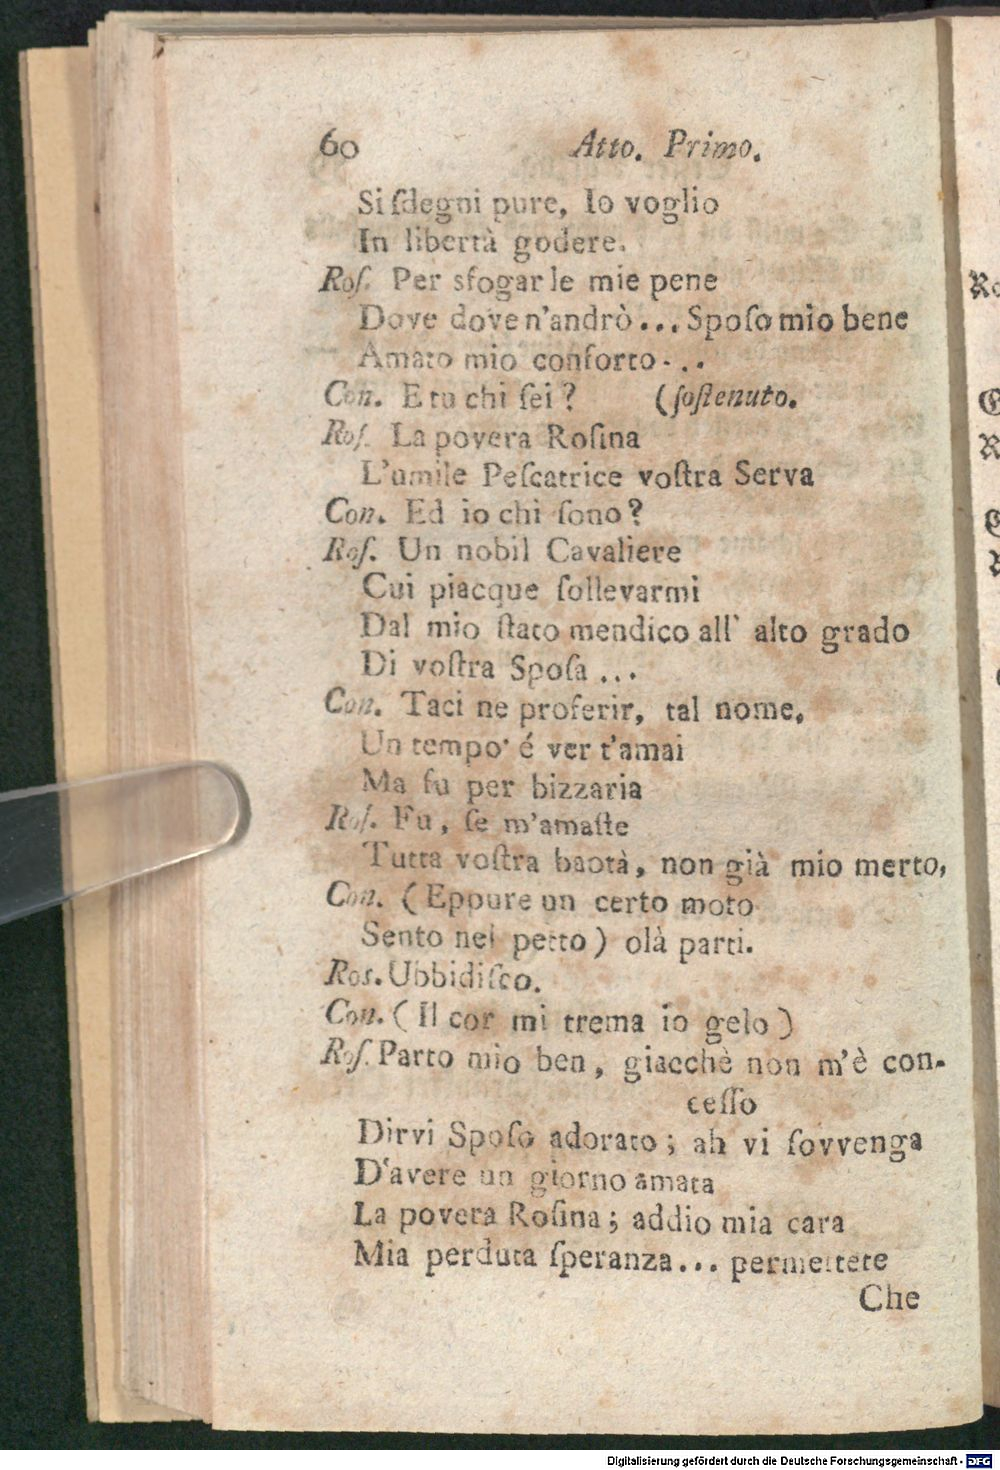 60 Atto. Primo.
Si ſdegni pure, Io voglio
In libertà godere.
Roſ. Per sfogar le mie pene
Dove dove n'andrò... Spoſo mio bene
Amato mio conforto...
Con. E tu chi ſei? (ſoſtenuto.
Roſ. La povera Roſina
L'umile Peſcatrice voſtra Serva
Con. Ed io chi ſono?
Roſ. Un nobil Cavaliere
Cui piacque ſollevarmi
Dal mio ſtato mendico all' alto grado
Di voſtra Spoſa...
Con. Taci ne proferir, tal nome.
Un tempo é ver t'amai
Ma fu per bizzaria
Roſ. Fu, ſe m'amaſte
Tutta voſtra baotà, non già mio merto,
Con. (Eppure un certo moto
Sento nel petto) olà parti.
Ros. Ubbidiſco.
Con. (Il cor mi trema io gelo)
Roſ. Parto mio ben, giacchè non m'è con-
ceſſo
Dirvi Spoſo adorato; ah vi ſovvenga
D'avere un giorno amata
La povera Roſina; addio mia cara
Mia perduta ſperanza... permettete
Che
Digitalisierung gefördert durch die Deutsche Forschungsgemeinschaft - DFG